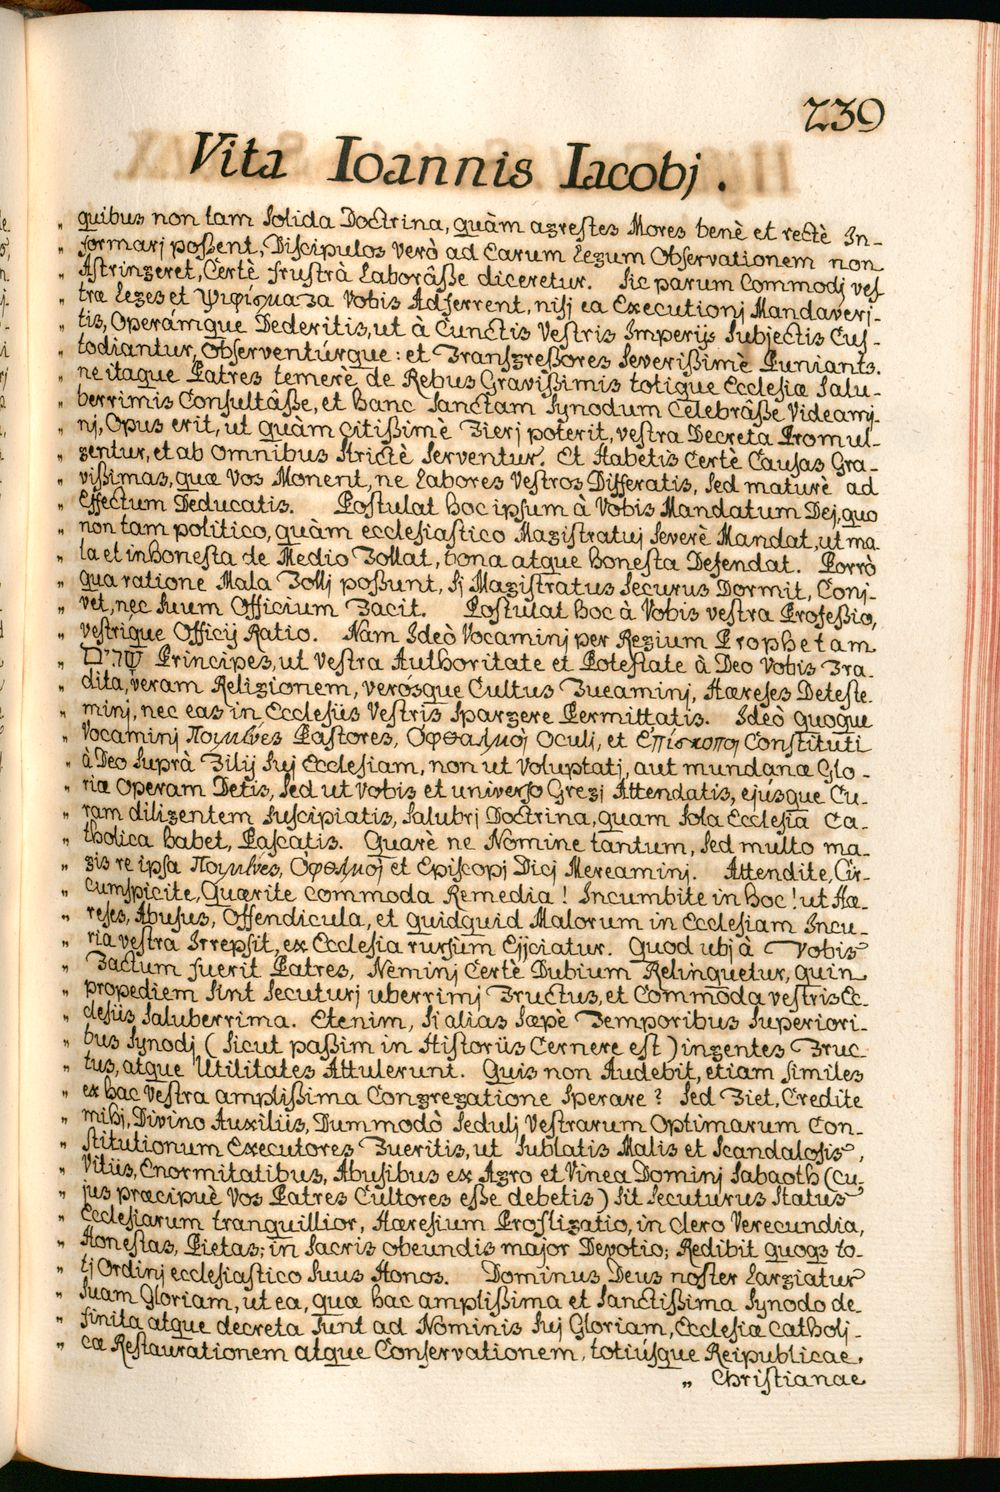 239
Vita Ioannis Iacobj.
„ quibus non tam solida Doctrina, quàm agrestes Mores benè et rectè In-
„ formarj poßent, Discipulos verò ad Earum Legum Observationem non
„ Astringeret, Certè frustrà Laborâße diceretur. Sic parum Commodj ves-
„ træ Leges et ψιφίσματα Vobis Adferrent, nisj ea Executionj Mandaveri-
„ tis, Operámque Dederitis, ut à Cunctis Vestris Imperijs Subjectis Cus-
„ todiantur, Observentúrque: et Transgreßores Severißimè Puniants.
„ ne itaque Patres temerè de Rebus Gravißimis totique Ecclesiæ Salu-
„ berrimis Consultâße, et hanc Sanctam Synodum Celebrâße Videamj-
„ nj, Opus erit, ut quàm citißimè Fierj poterit, vestra Decreta Promul-
„ gentur, et ab omnibus strictè Serventur. Et Habetis Certè Causas Gra-
„ vißimas, quæ Vos Monent, ne Labores Vestros Differatis, Sed maturè ad
„ Effectum Deducatis. Postulat hoc ipsum à Vobis Mandatum Dej, quo
„ non tam politico, quàm ecclesiastico Magistratuj Severè Mandat, ut ma-
„ la et inhonesta de Medio Tollat, bona atque honesta Defendat. Porrò
„ qua ratione Mala Tollj poßunt, sj Magistratus Securus Dormit, Conj-
„ vet, nec Suum Officium Facit. Postulat hoc à Vobis vestra Profeßio,
„ vestríque Officij Ratio. Nam Ideò Vocaminj per Regium Prophetam
„ שָׂרִים Principes, ut Vestra Authoritate et Potestate à Deo Vobis Tra-
„ dita, veram Religionem, verósque Cultus Tueaminj, Hæreses Deteste-
„ minj, nec eas in Ecclesiis Vestris Spargere Permittatis. Ideò quoque
„ Vocaminj Ποιμένες Pastores, Οφθαλμοὶ Oculi, et Επίσκοποι Constituti
„ à Deo Suprà Filij Sui Ecclesiam, non ut Voluptatj, aut mundanæ Glo-
„ riæ Operam Detis, Sed ut Vobis et universo Gregj Attendatis, ejusque Cu-
„ ram diligentem Suscipiatis, Salubrj Doctrina, quam Sola Ecclesia Ca-
„ tholica habet, Pascatis. Quarè ne Nomine tantum, Sed multo ma-
„ gis re ipsa Ποιμένες, Οφθαλμοὶ et Episcopj Dicj Mereaminj. Attendite, Cir-
„ cumspicite, Quærite Commoda Remedia! Incumbite in hoc! ut Hæ-
„ reses, Abusus, Offendicula, et quidquid Malorum in Ecclesiam Incu-
„ ria vestra Irrepsit, ex Ecclesia rursùm Ejiciatur. Quod ubj à Vobis
„ Factum fuerit Patres, Neminj Certè Dubium Relinquetur, quin
„ propediem Sint Secuturj uberrimj Fructus, et Commoda vestris Ec-
„ clesiis Saluberrima. Etenim, Si alias Sæpè Temporibus Superiori-
„ bus Synodj (Sicut paßim in Historiis Cernere est) ingentes Fruc-
„ tus, atque Utilitates Attulerunt. Quis non Audebit, etiam Similes
„ ex hac Vestra amplißima Congregatione Sperare? Sed Fiet, Credite
„ mihj, Divino Auxiliis, Dummodò Sedulj Vestrarum Optimarum Con-
„ stitutionum Executores Fueritis, ut Sublatis Malis et Scandalosis,
„ Vitiis, Enormitatibus, Abusibus ex Agro et Vinea Dominj Sabaoth (Cu-
„ jus præcipuè Vos Patres Cultores eße debetis) Sit Secuturus Status
„ Ecclesiarum tranquillior, Hæresium Profligatio, in clero Verecundia,
„ Honestas, Pietas; in Sacris obeundis major Devotio; Redibit quoqs to-
„ tj Ordinj ecclesiastico Suus Honos. Dominus Deus noster Largiatur
„ Suam Gloriam, ut ea, quæ hac amplißima et Sanctißima Synodo de-
„ finita atque decreta Sunt ad Nominis Suj Gloriam, Ecclesiæ Catholj-
„ cæ Restaurationem atque Conservationem, totiúsque Reipublicae
„ Christianae